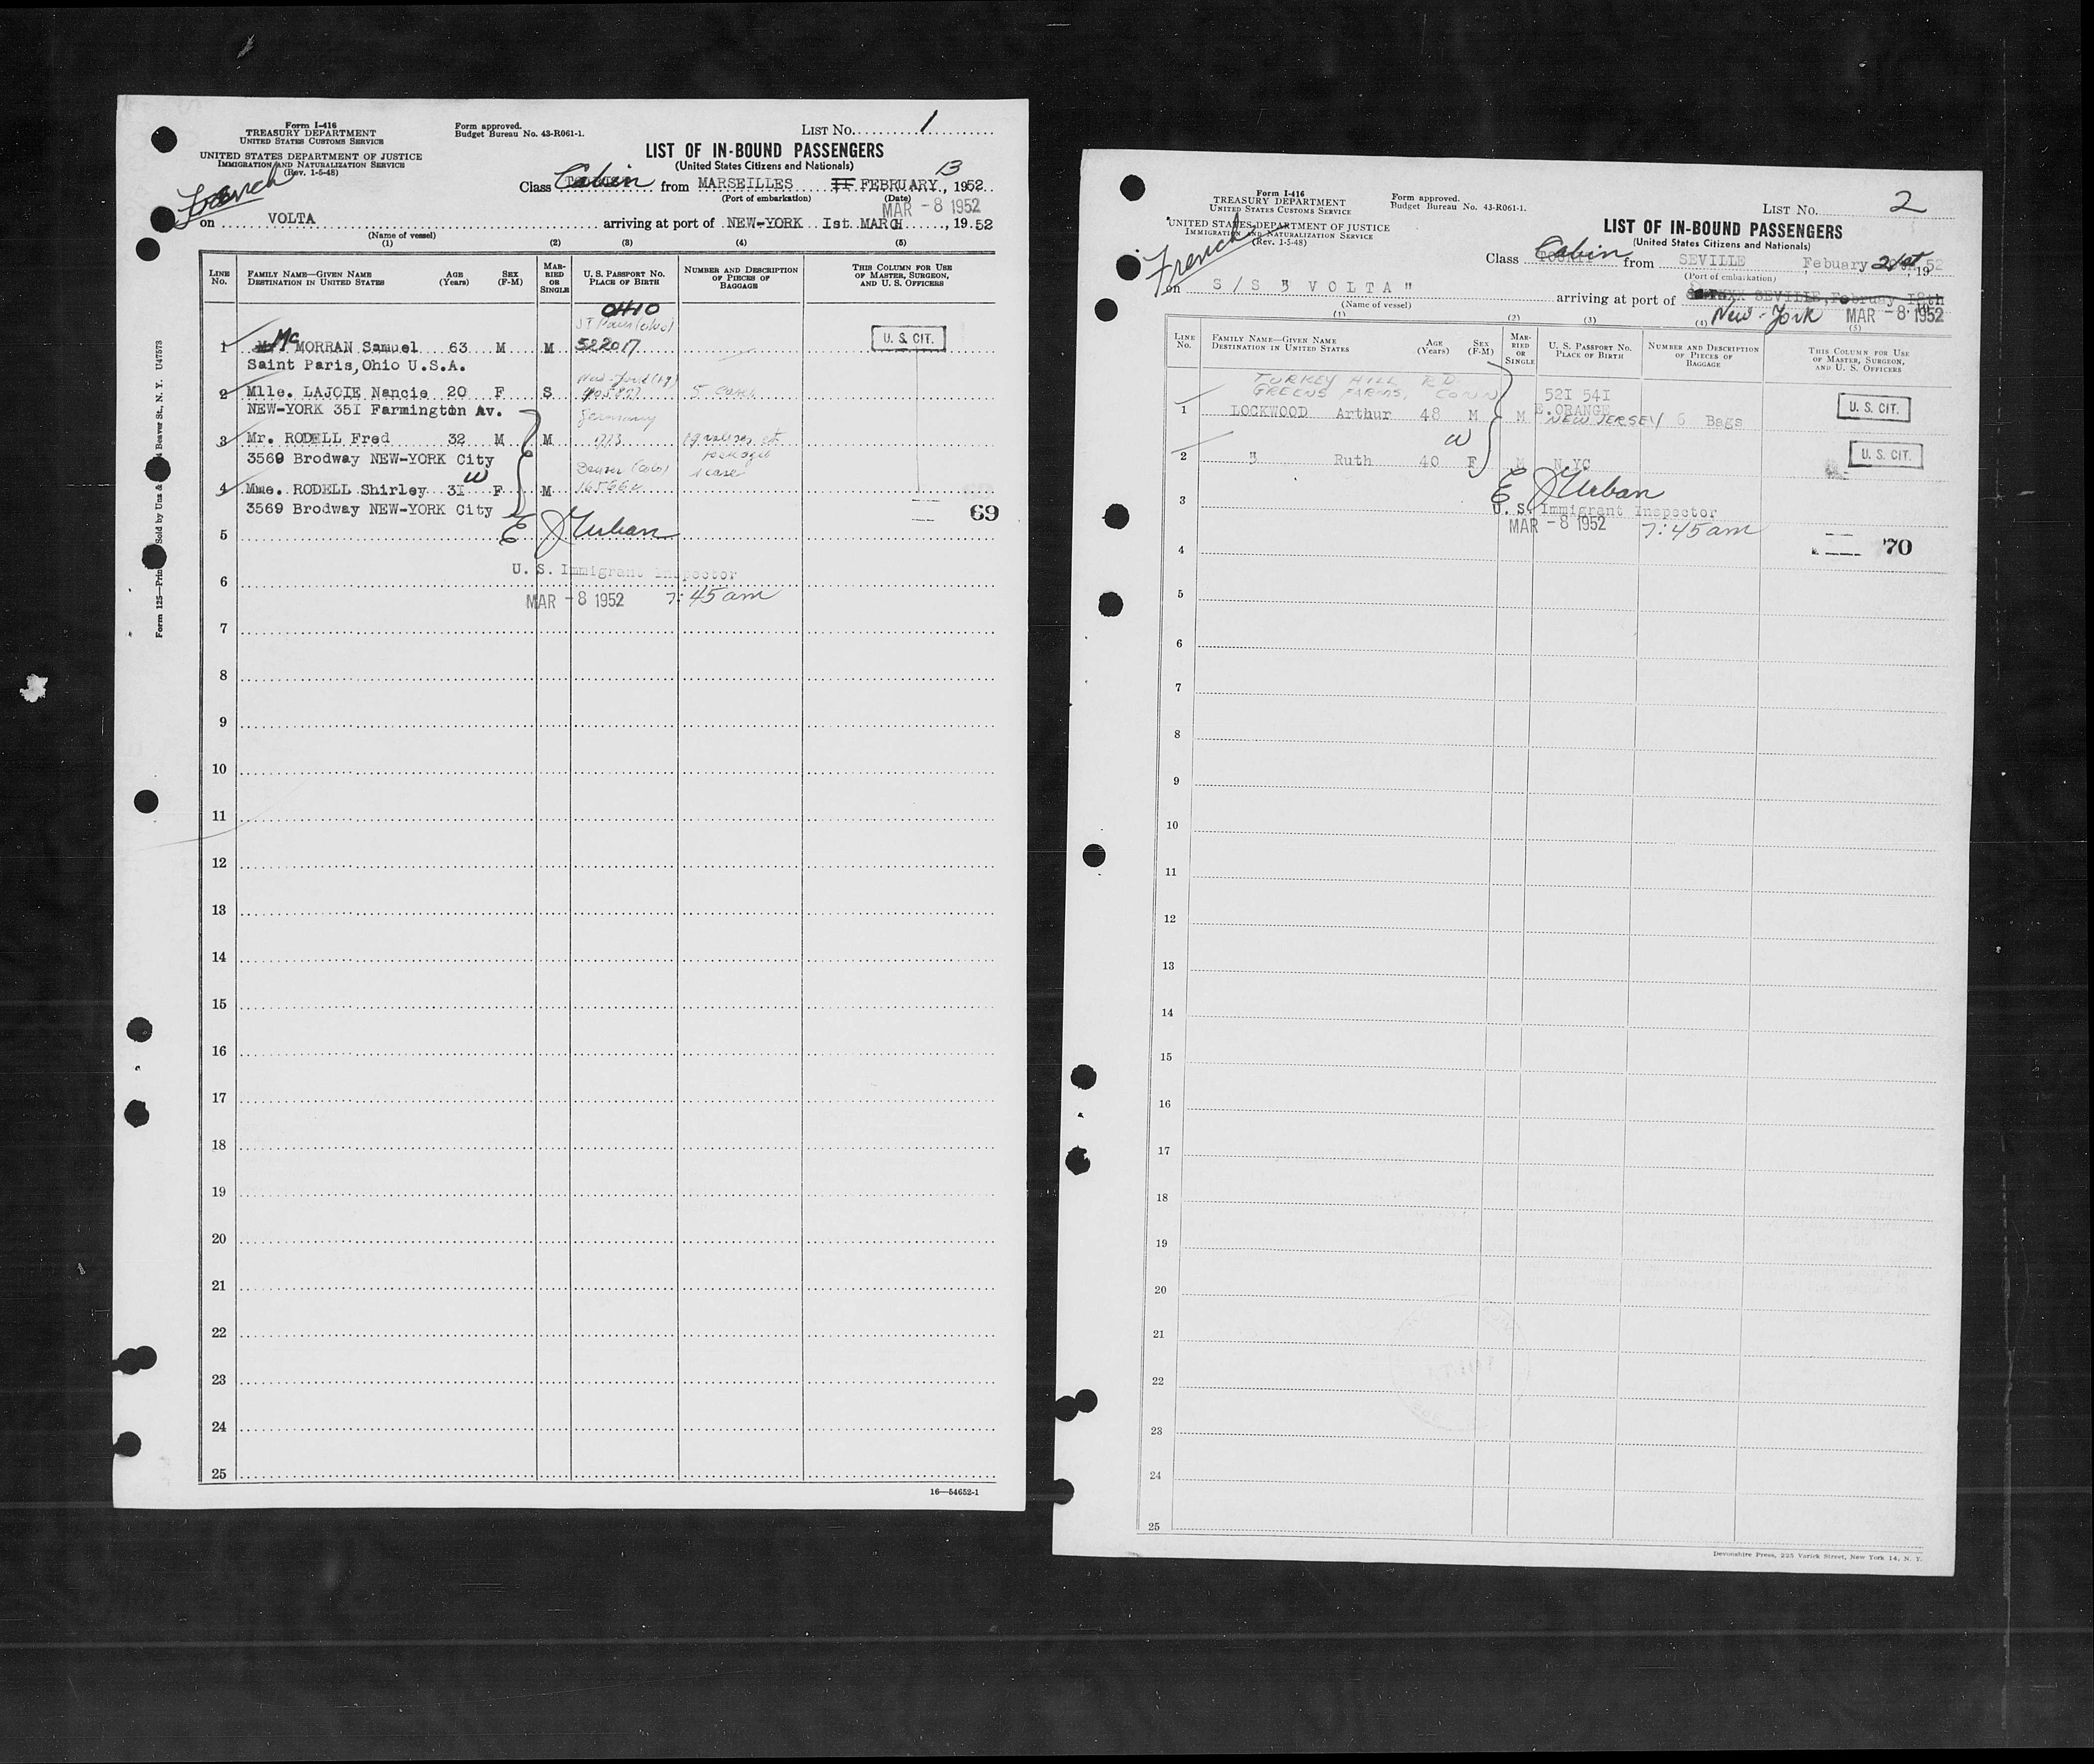 Form I-416
TREASURY DEPARTMENT
UNITED STATES CUSTOMS SERVICE
UNITED STATES DEPARTMENT OF JUSTICE
IMMIGRATION AND NATURALIZATION SERVICE
(Rev. 1-5-48)
French
Form approved.
Budget Bureau No. 43-R061-1.
LIST No. 1
LIST OF IN-BOUND PASSENGERS
(United States Citizens and Nationals)
Class Cabin from MARSEILLES FEBRUARY 13, 1952
(Port of embarkation) (Date)
MAR -8 1952
on VOLTA arriving at port of NEW-YORK Ist MARCH, 1952
(Name of vessel)
(1) (2) (3) (4) (5)
LINE No. FAMILY NAME—GIVEN NAME DESTINATION IN UNITED STATES AGE (Years) SEX (F-M) MARRIED OR SINGLE U. S. PASSPORT NO. PLACE OF BIRTH NUMBER AND DESCRIPTION OF PIECES OF BAGGAGE THIS COLUMN FOR USE OF MASTER, SURGEON, AND U. S. OFFICERS
OHIO
ST Paris (ohio)
1 Mc MORRAN Samuel 63 M M 522017 U. S. CIT.
Saint Paris, Ohio U.S.A.
2 Mlle. LAJOIE Nancie 20 F S 5 cases
NEW-YORK 35I Farmington Av.
Germany
3 Mr. RODELL Fred 32 M M
3569 Brodway NEW-YORK City
Denver (Colo) 1 case
W
4 Mme. RODELL Shirley 3I F M
3569 Brodway NEW-YORK City
69
5 E J Urban
6 U. S. Immigrant Inspector
MAR -8 1952 7:45am
7
8
9
10
11
12
13
14
15
16
17
18
19
20
21
22
23
24
25
16—54652-1
Form I-416
TREASURY DEPARTMENT
UNITED STATES CUSTOMS SERVICE
UNITED STATES DEPARTMENT OF JUSTICE
IMMIGRATION AND NATURALIZATION SERVICE
(Rev. 1-5-48)
French
Form approved.
Budget Bureau No. 43-R061-1.
LIST No. 2
LIST OF IN-BOUND PASSENGERS
(United States Citizens and Nationals)
Class Cabin from SEVILLE Febuary 21st, 1952
(Port of embarkation)
on S/S " VOLTA " arriving at port of SEVILLE, February 18th
(Name of vessel)
New-York MAR -8 1952
(1) (2) (3) (4) (5)
LINE No. FAMILY NAME—GIVEN NAME DESTINATION IN UNITED STATES AGE (Years) SEX (F-M) MARRIED OR SINGLE U. S. PASSPORT NO. PLACE OF BIRTH NUMBER AND DESCRIPTION OF PIECES OF BAGGAGE THIS COLUMN FOR USE OF MASTER, SURGEON, AND U. S. OFFICERS
TURKEY HILL RD
GREENS FARMS, CONN 52I 54I
E. ORANGE
1 LOCKWOOD Arthur 48 M M NEW JERSEY 6 Bags U. S. CIT.
W
2 " Ruth 40 F M N.YC U. S. CIT.
E J Urban
3 U. S. Immigrant Inspector
MAR -8 1952 7:45am
4 70
5
6
7
8
9
10
11
12
13
14
15
16
17
18
19
20
21
22
23
24
25
Devonshire Press, 225 Varick Street, New York 14, N. Y.